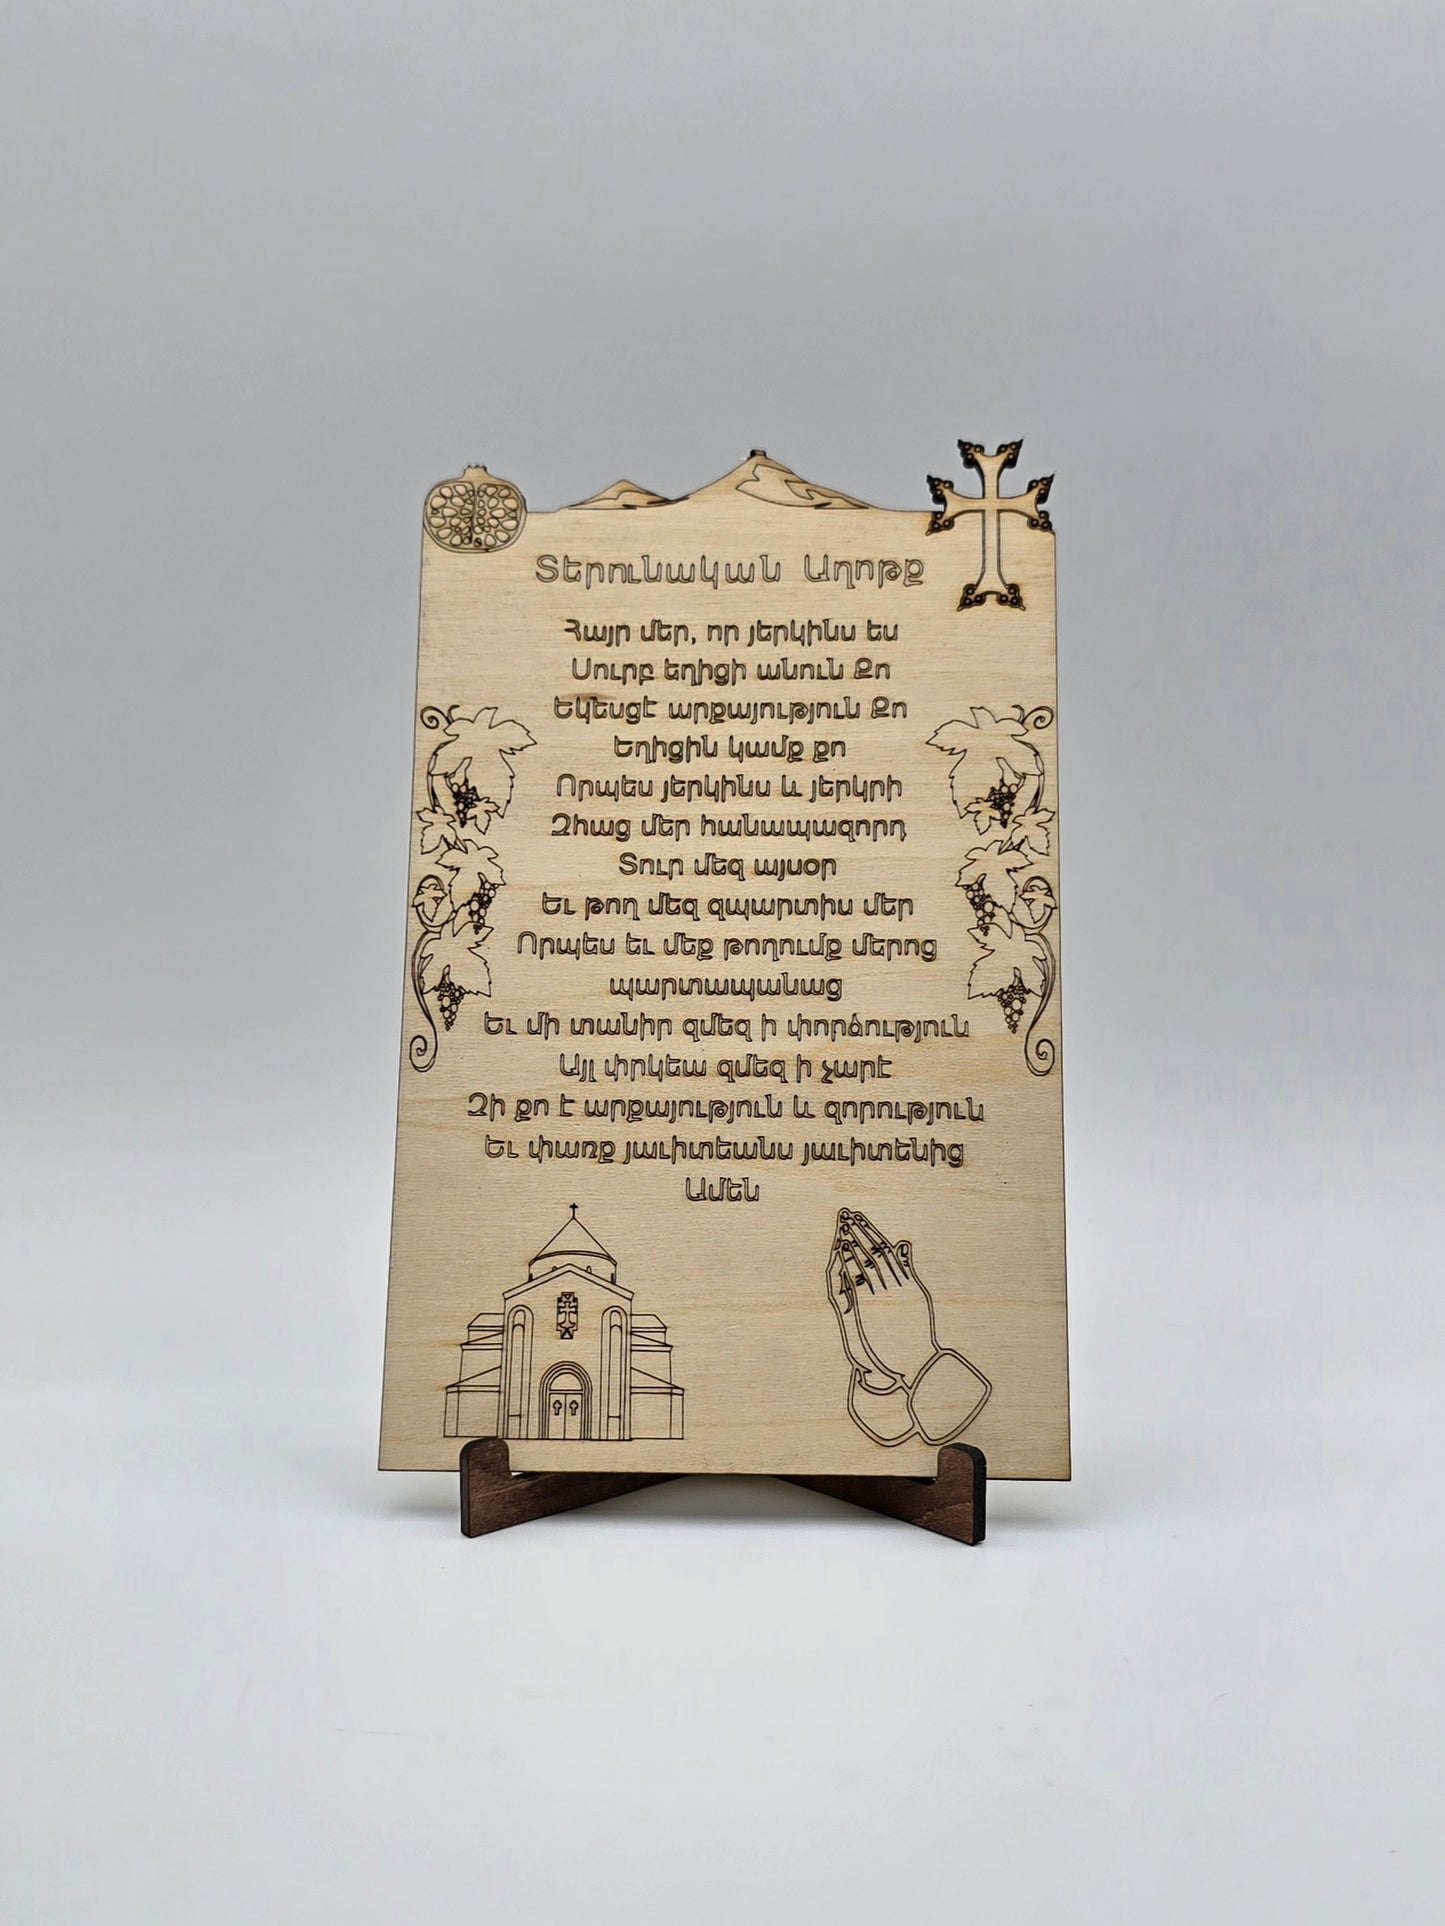 Տերունական Աղոթք
Հայր մեր, որ յերկինս ես
Սուրբ եղիցի անուն Քո
Եկեսցէ արքայություն Քո
Եղիցին կամք քո
Որպես յերկինս և յերկրի
Զհաց մեր հանապազորդ
Տուր մեզ այսօր
Եւ թող մեզ զպարտիս մեր
Որպես եւ մեք թողումք մերոց
պարտապանաց
Եւ մի տանիր զմեզ ի փորձություն
Այլ փրկեա զմեզ ի չարէ
Զի քո է արքայություն և զորություն
Եւ փառք յաւիտեանս յաւիտենից
Ամեն